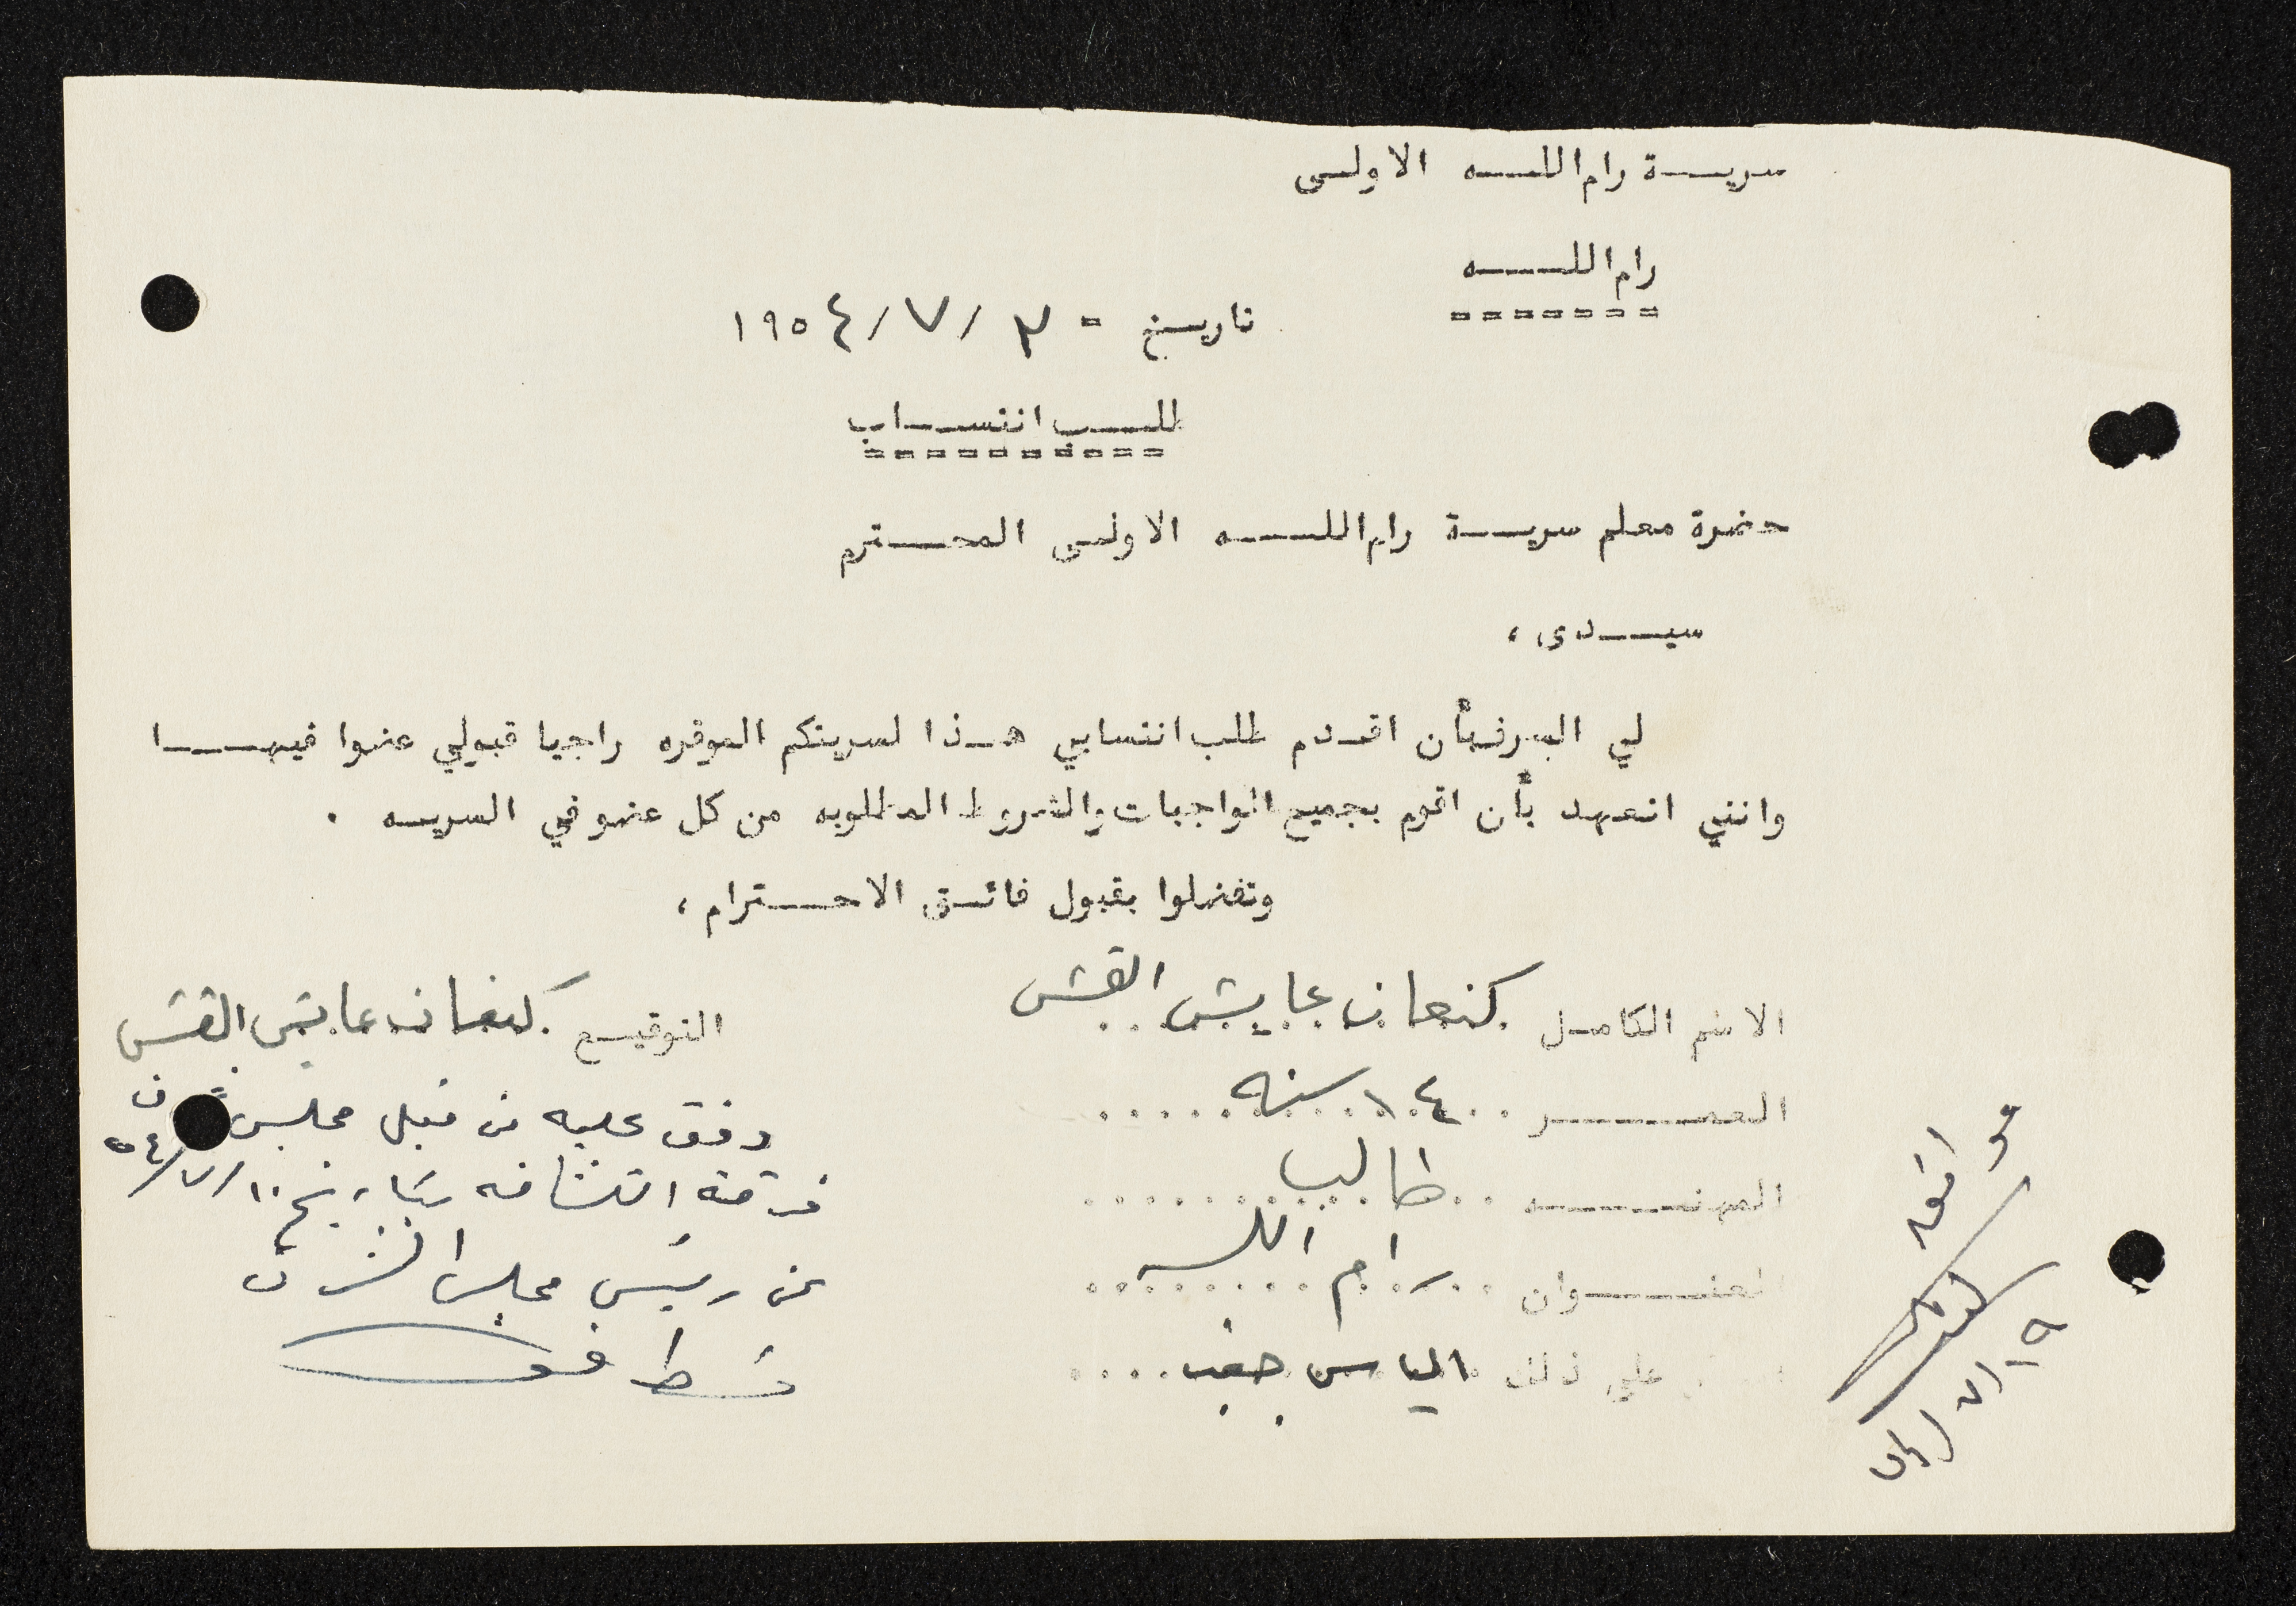 سرية رام الله الاولى
رام الله
تاريخ - ٣ /٧/ ١٩٥٤
طلب انتساب
حضرة معلم سرية رام الله الاولى المحترم
سيدى ،
لي الشرف بأن اقدم طلب انتسابي هذا لسريتكم الموقره راجيا قبولي عضوا فيها
وانني اتعهد بأن اقوم بجميع الواجبات والشروط المطلوبه من كل عضو في السريه .
وتفضلوا بقبول فائق الاحترام ،
الاسم الكامل كنعان عايش القسّ
التوقيع كنعان عايش القسّ
العمر ١٤ سنه
المهنه طالب
العنوان رام الله
على ذلك الياس
وفق عليه من قبل مجلس
فرقة الكشافه بتاريخ ١٠/٧/٥٤
عن رئيس مجلس الشرف
موافق
١٩/٧/٥٤